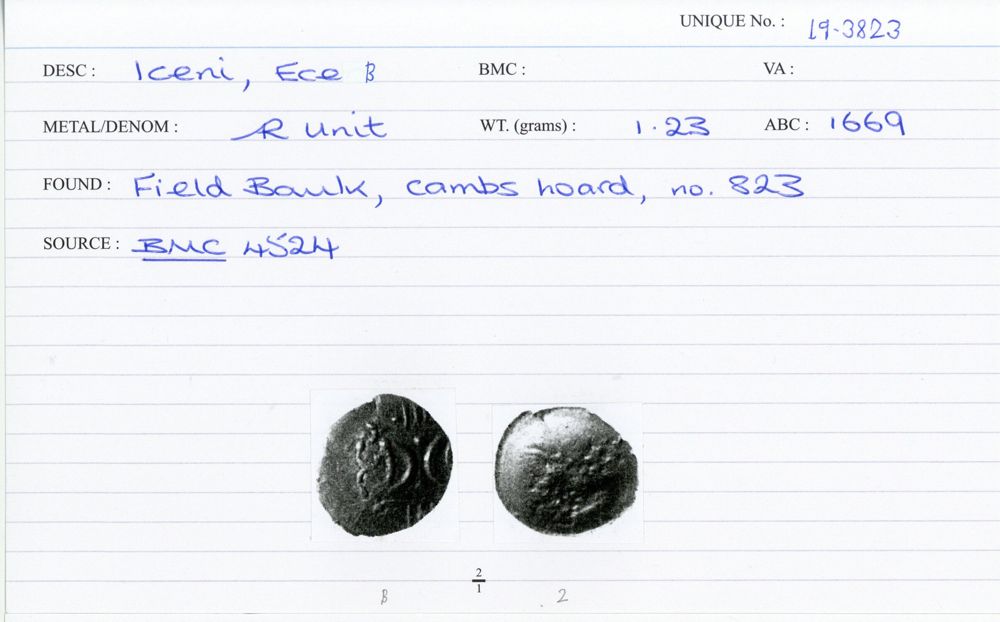 UNIQUE No. : 19-3823
DESC : Iceni, Ece B BMC : VA :
METAL/DENOM : Æ Unit WT. (grams) : 1.23 ABC : 1669
FOUND : Field Baulk, Cambs hoard, no. 823
SOURCE : BMC 4524
2
1
B 2